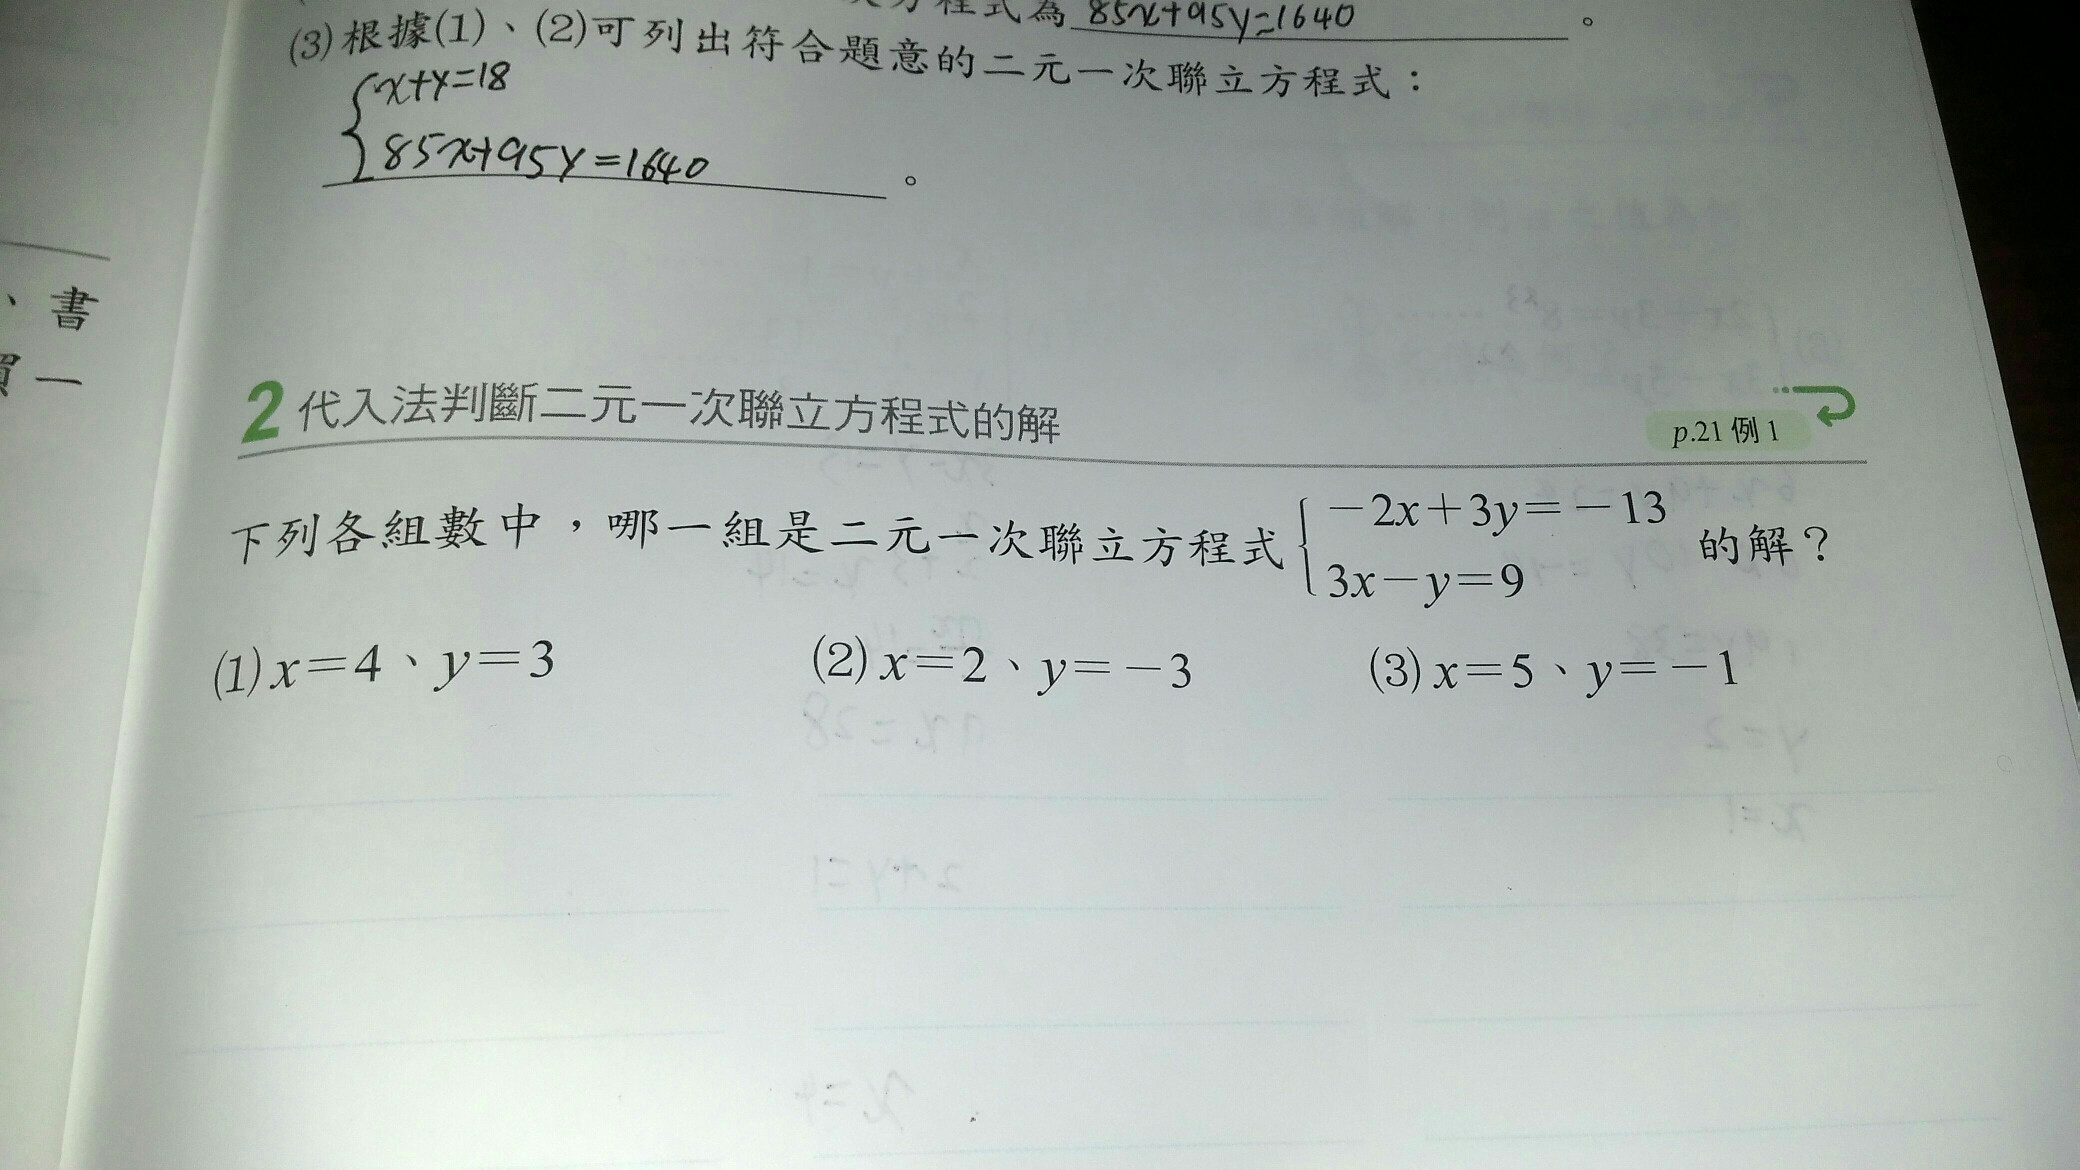 方程式為 85x+95y=1640。
(3)根據(1)、(2)可列出符合題意的二元一次聯立方程式：
x+y=18
85x+95y=1640。
、書
一
2 代入法判斷二元一次聯立方程式的解
p.21 例1
下列各組數中，哪一組是二元一次聯立方程式 { -2x+3y=-13 的解？
3x-y=9
(1) x=4、y=3 (2) x=2、y=-3 (3) x=5、y=-1